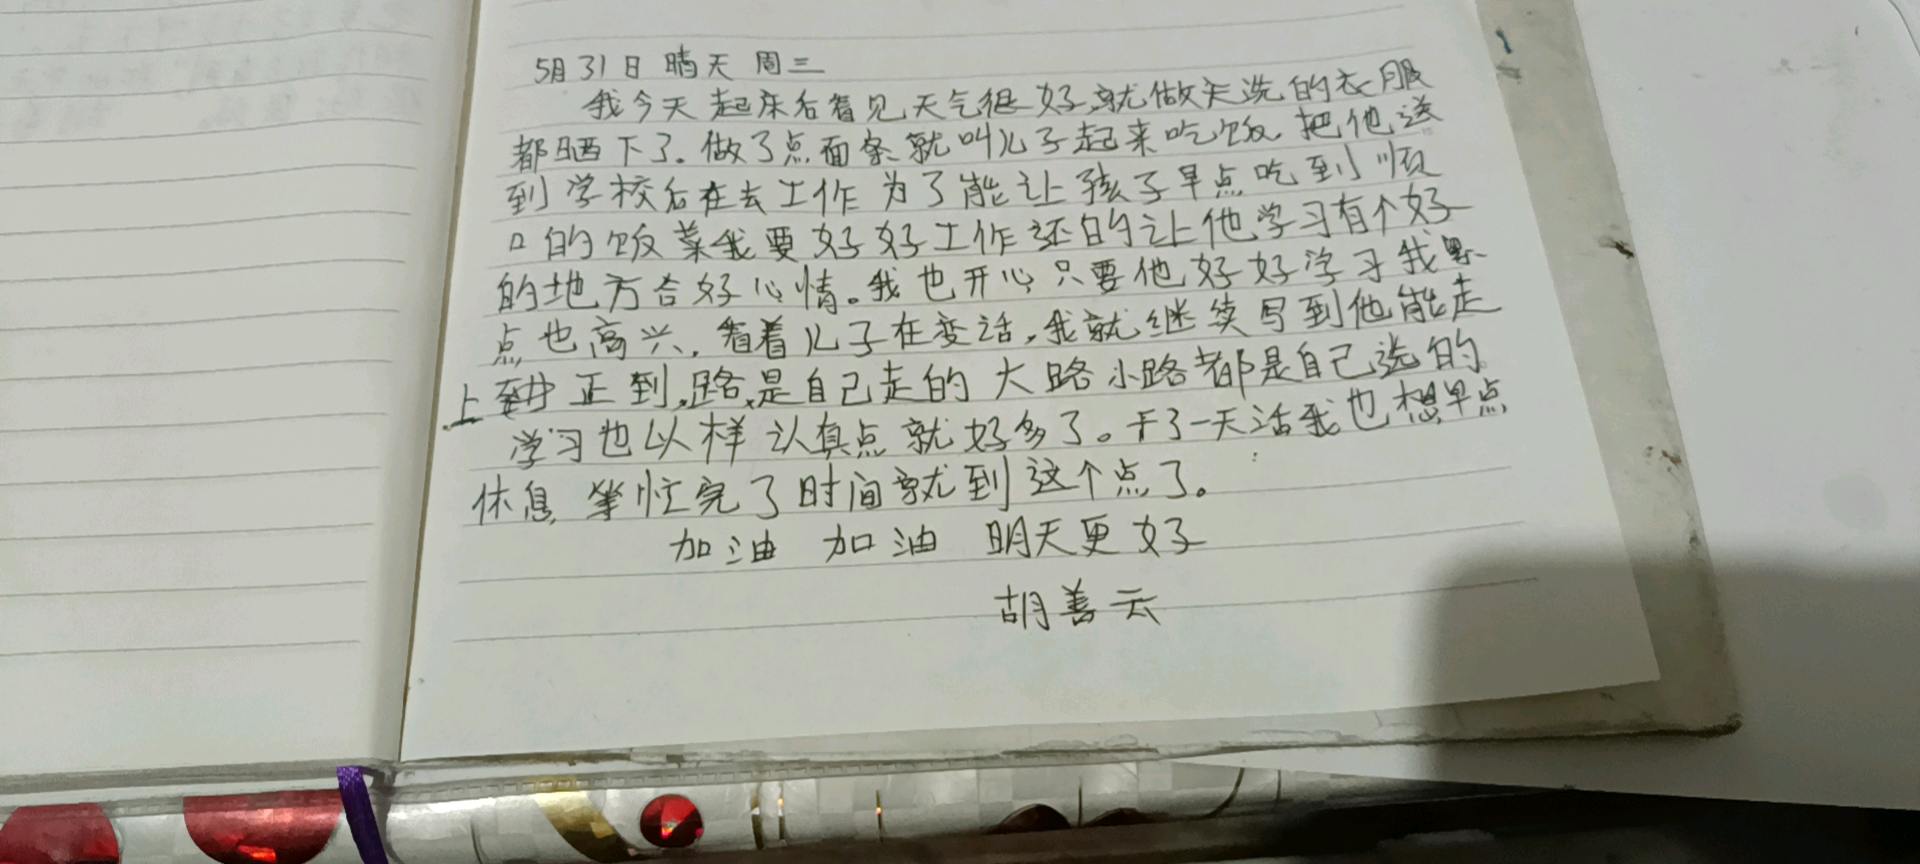 5月31日 晴天 周三
我今天起床后看见天气很好就做天洗的衣服
都晒下了。做了点面条就叫儿子起来吃饭 把他送
到学校后在去工作 为了能让孩子早点吃到顺
口的饭菜我要好好工作还的让他学习有个好
的地方合好心情。我也开心只要他好好学习我累
点也高兴,看着儿子在变话,我就继续写到他能走
上 正到,路,是自己走的 大路小路都是自己选的
学习也以样认真点就好多了。干了一天活我也想早点
休息 等忙完了时间就到这个点了。
加油 加油 明天更好
胡善云